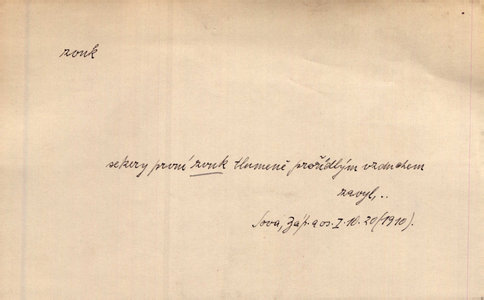 zvuk
sekery první zvuk tlumeně prořídlým vzduchem
zavyl,..
Sova, Záp. a os. I. 10. 20 (1910).